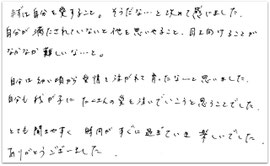 まずは自分を愛すること。そうだな…と改めて感じました。
自分が満たされていないと他を思いやること、目を向けることが
なかなか難しいなと。
自分は幼い頃から愛情を注がれて育ったなと思いました。
自分も我が子に たくさんの愛を注いでいこうと思うことでした。
とても聞きやすく 時間がすぐに過ぎていき 楽しいでした。
ありがとうございました。